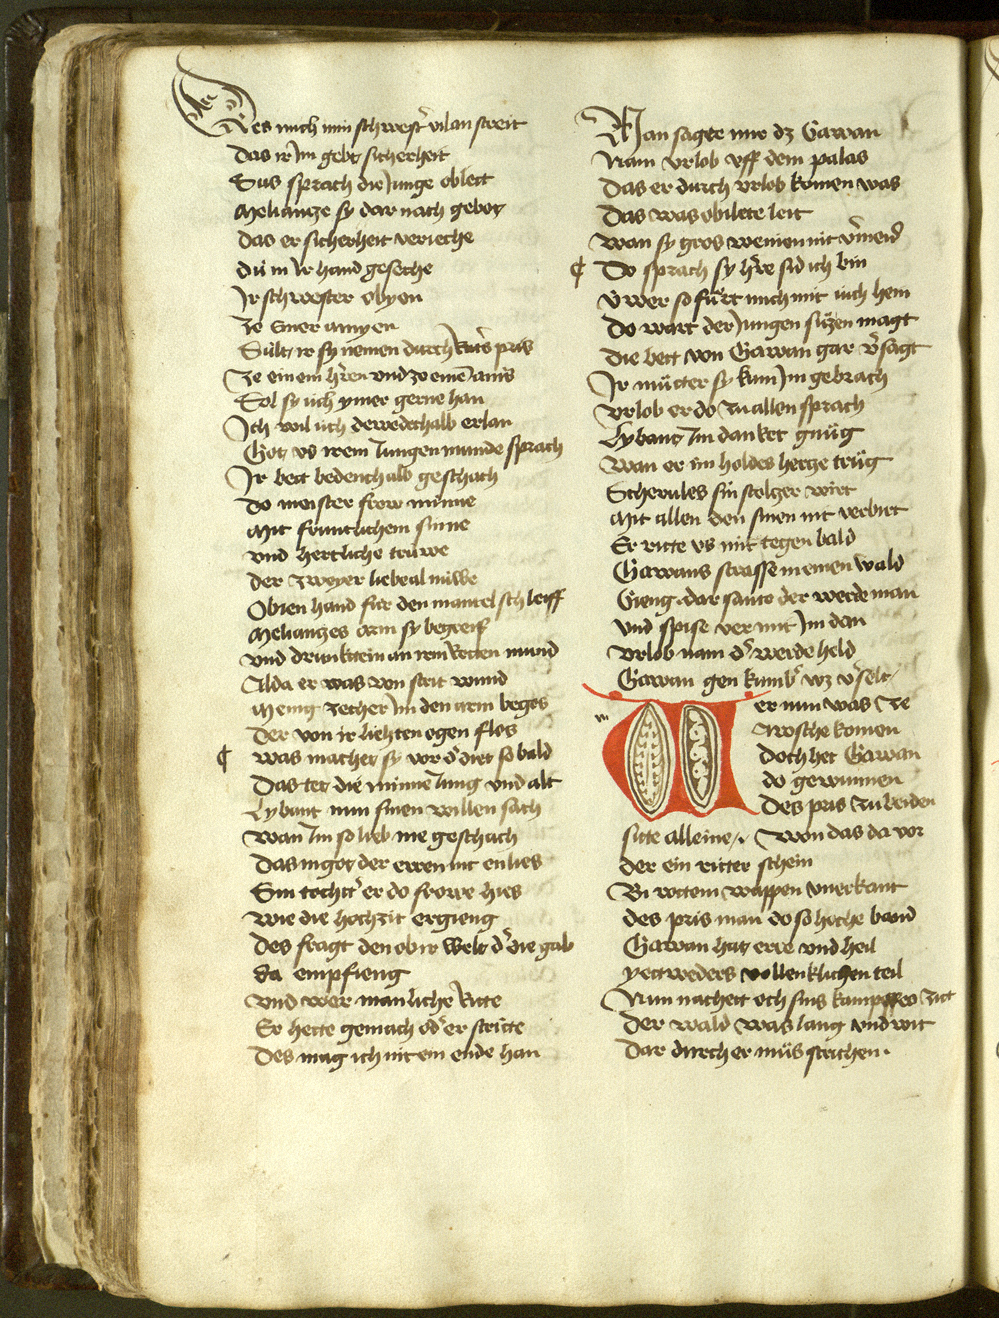 Des mich min schwest̉ vil an streit
Das ir im gebt sicherheit
Sus sprach die Junge obleit
Meliantze sy dar nach gebot
Das er sicherheit verieche
Dů in Ir hand gescheche
Ir schwester obyen
Ze uwer amyen
Sült ir sy nemen durch Ritt̉s pris
Ze einem h̉ren vnd zo einē amis
Sol sy üch ymer gerne han
Ich wil üch dewederhalb erlan
Got vs irem Jungen munde sprach
Ir bett bedenthalb geschach
Do meister frow minne
Mit frintlichem sinne
vnd hertzliche trüwe
der zweyer liebe al nüwe
Obien hand für den mantel schleiff
Meliantzes arm sy begreiff
vnd drunkt ein an irem Rotten mund
Alda er was von strit wund
Menig zecher Im den arm begos
Der von ir liehten ogen flos
¶ was machet sy vor d̉ diet so bald
Das tet die minne Jung vnd alt
Lybant nun sinen willen sach
wan Im so lieb nie geschach
Das in got der erren nit enlies
Sin tocht̉ er do frowe hies
wie die hochzit ergieng
Des fragt den ob ir welt d̉ die gab
da empfieng
vnd wer manliche Ritte
Er hette gemach od̉ er stritte
Des mag ich nit ein ende han
Man sagte mir dz Gawan
Nam vrlob vff dem palas
Das er durch vrlob komen was
Das was obilete leit
wan sy gros weinen nit v̉meid
¶ Do sprach sy h̉re sid ich bin
ůwer so fůrt mich mit üch hein
Do wart der Jungen süzen magt
Die bett von Gawan gar v̉sagt
Ir můtter sy kum Im gebrach
vrlob er do zu allen sprach
Lybant Im danket gnůg
wan er im holdes hertze trůg
Scherules sin stoltzer wirt
Mit allen den sinen nit verbirt
Er ritte vs mit tegen bald
Gawans strasse in einen wald
Gieng dar sante der werde man
vnd spise verr mit Im dan
vrlob nam d̉ werde held
Gawan gen kumb̉ wz v̉selt
Wer nun was ze
Artosche komen
Doch het Gawan
do gewunnen
Des pris zu beiden
sitte alleine Won das da vor
der ein ritter schein
Bi rottem wappen vnerkant
des pris man do so hoche band
Gawan hat erre vnd heil
yettweders vollenklichen teil
Nun nachett och sins kampffes zit
der wald was lang vnd wit
Dar durch er můs strichen